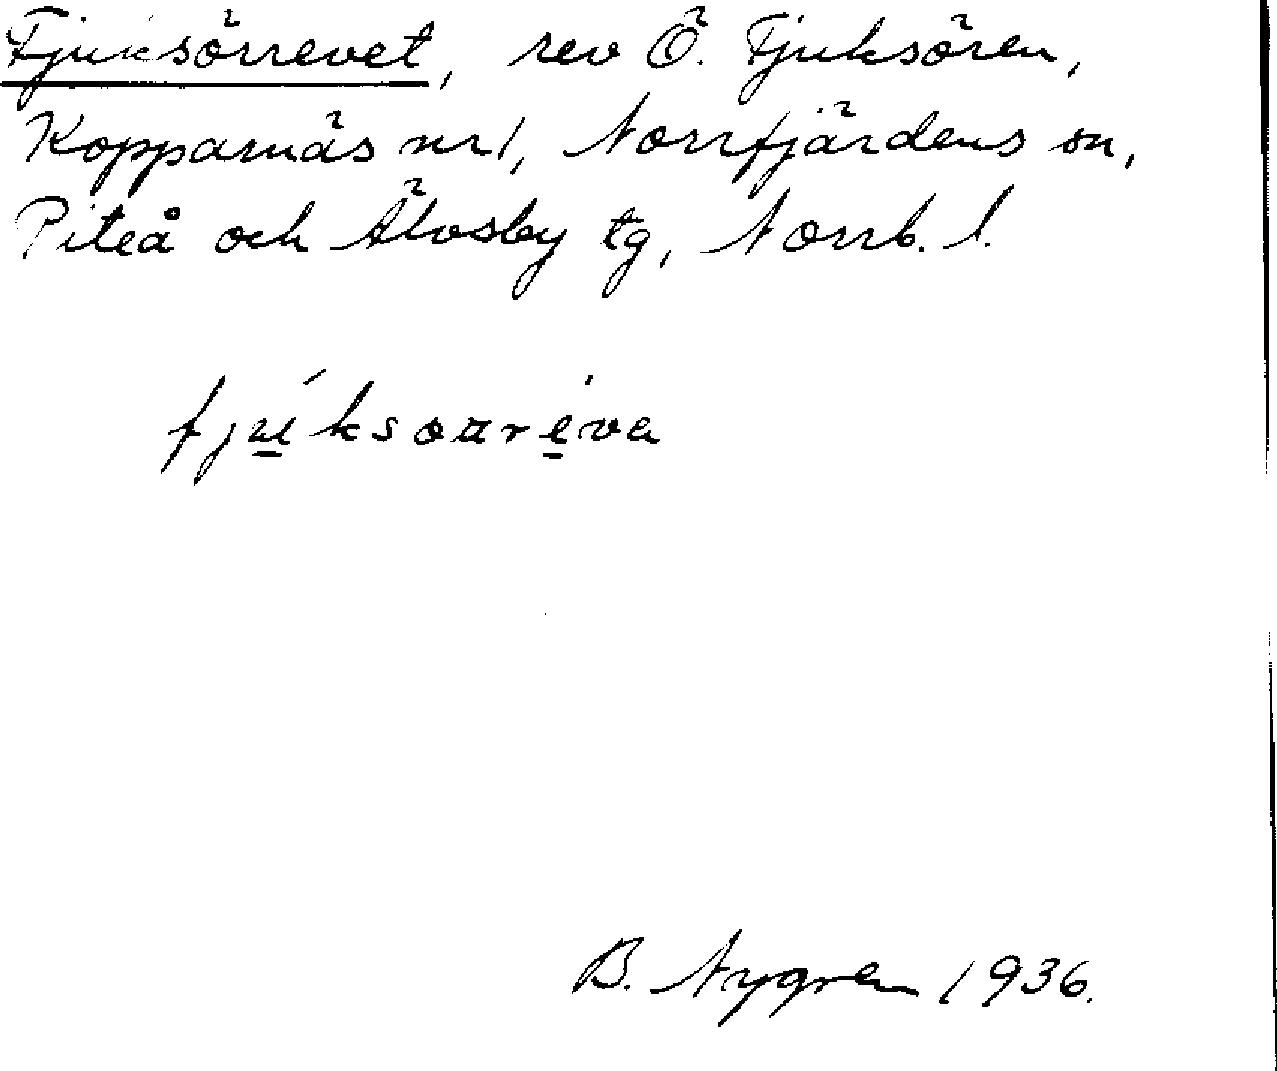 Fjuksörrevet, rev Ö. Fjuksören,
Kopparnäs nr 1, Norrfjärdens sn,
Piteå och Älvsby tg, Norrb. l.
B. Nygren 1936.